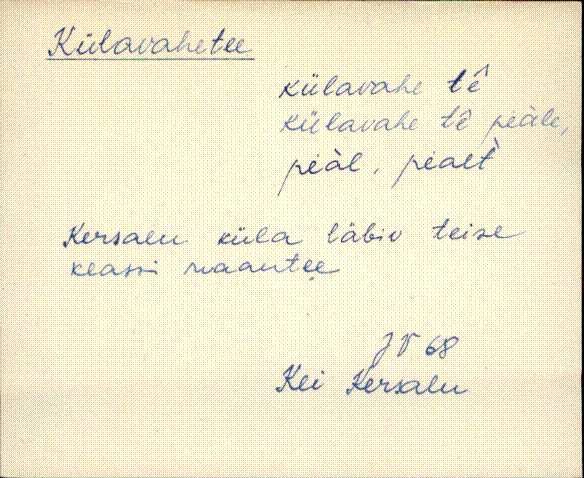 Külavahetee
külavahe tê
külavahe tê peàle,
peàl, pealt
Kersalu küla läbiv teise
klassi maantee
JV 68
Kei Kersalu